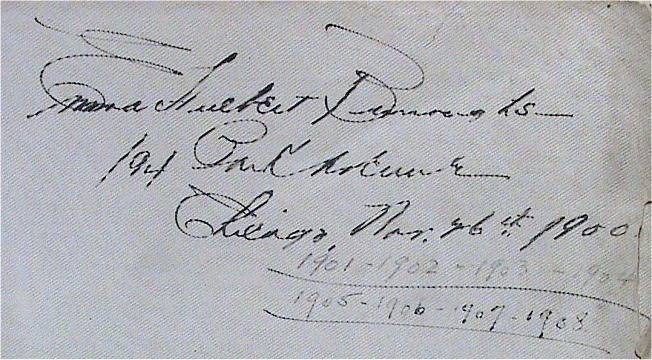 Emma Hulbert Burroughs
194 Park Avenue
Chicago, Nov. 26th. 1900
1901-1902-1903-1904
1905-1906-1907-1908